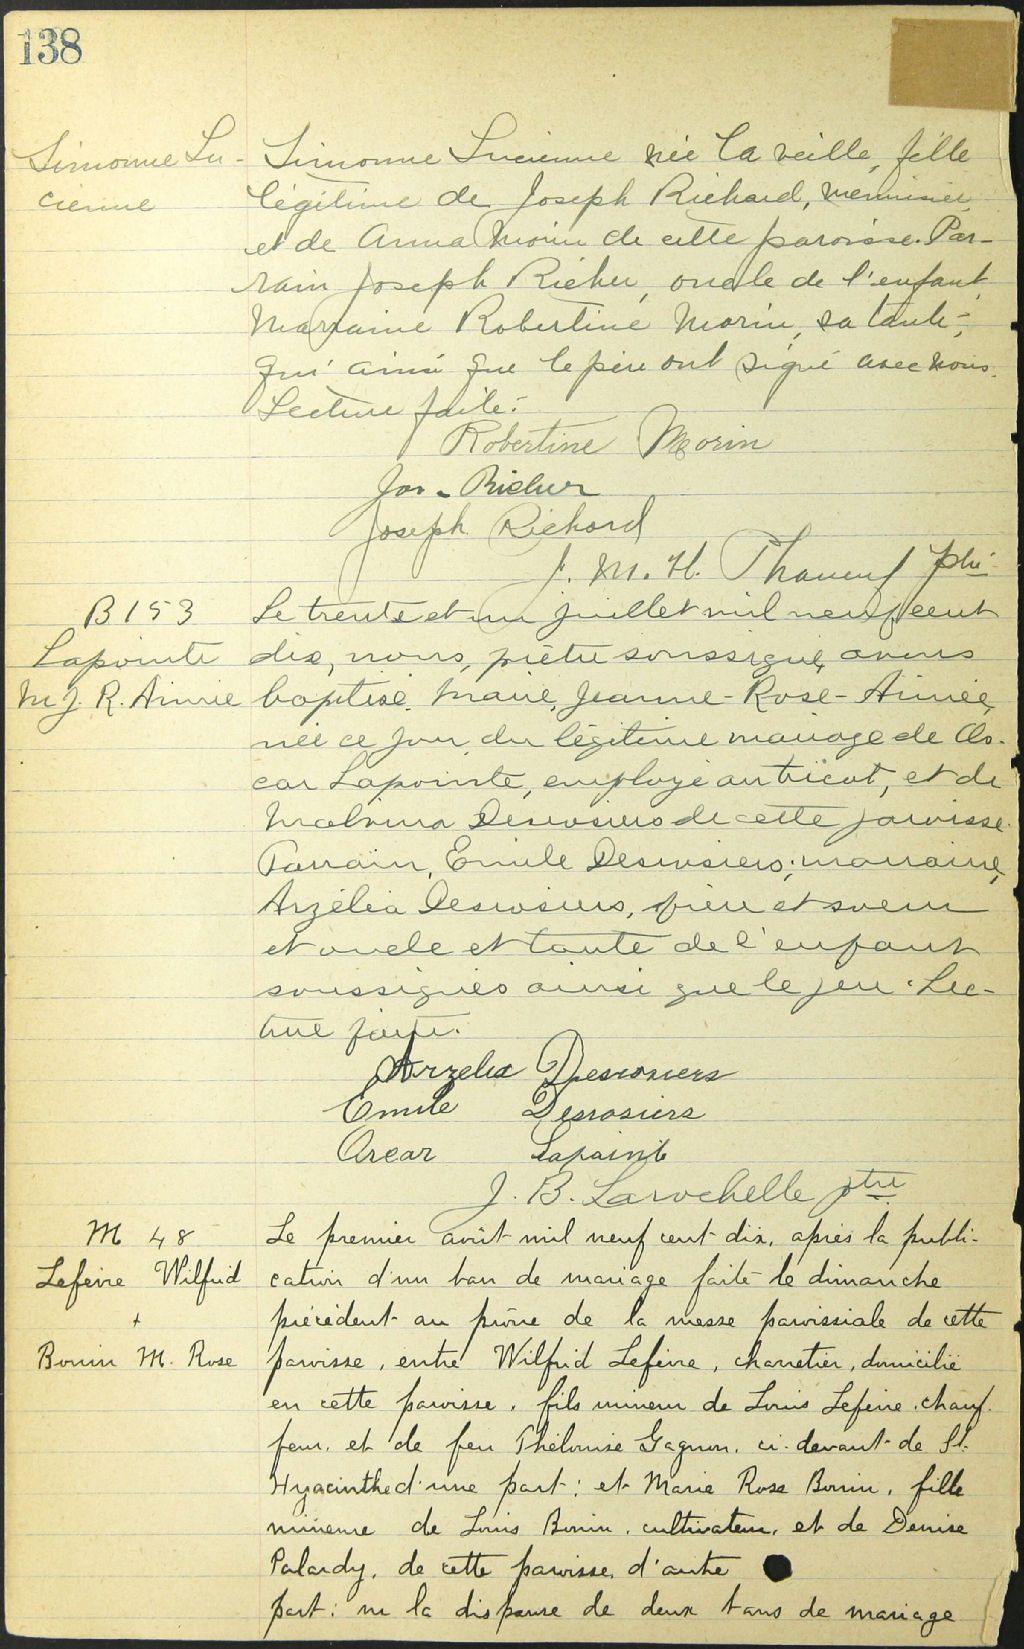 138
Simonne Lu-
cienne
Simonne Lucienne née la veille, fille
légitime de Joseph Richard, menuisier
et de Anna Morin de cette paroisse. Par-
rain Joseph Richer, oncle de l'enfant,
Marraine Robertine Morin, sa tante,
qui ainsi que le père ont signé avec nous.
Lecture faite.
Robertine Morin
Jos. Richer
Joseph Richard
J. M. H. Phaneuf ptre
B 153
Lapointe
M J. R. Aimée
Le trente et un juillet mil neuf cent
dix, nous, prêtre soussigné, avons
baptisé Marie, Jeanne-Rose-Aimée,
née ce jour du légitime mariage de Os-
car Lapointe, employé au tricot, et de
Malvina Desrosiers de cette paroisse.
Parrain, Emile Desrosiers; marraine,
Arzélia Desrosiers, frère et soeur
et oncle et tante de l'enfant
soussignés ainsi que le père. Lec-
ture faite.
Arzelia Desrosiers
Emile Desrosiers
Oscar Lapointe
J. B. Larochelle ptre
M 48
Lefeivre Wilfrid
+
Bonin M. Rose
Le premier août mil neuf cent dix, après la publi-
cation d'un ban de mariage faite le dimanche
précédent au prône de la messe paroissiale de cette
paroisse, entre Wilfrid Lefeivre, charretier, domicilié
en cette paroisse, fils mineur de Louis Lefeivre, chauf-
feur, et de feu Thélouise Gagnon, ci-devant de St.
Hyacinthe d'une part; et Marie Rose Bonin, fille
mineure de Louis Bonin, cultivateur, et de Denise
Palardy, de cette paroisse, d'autre
part; vu la dispense de deux bans de mariage